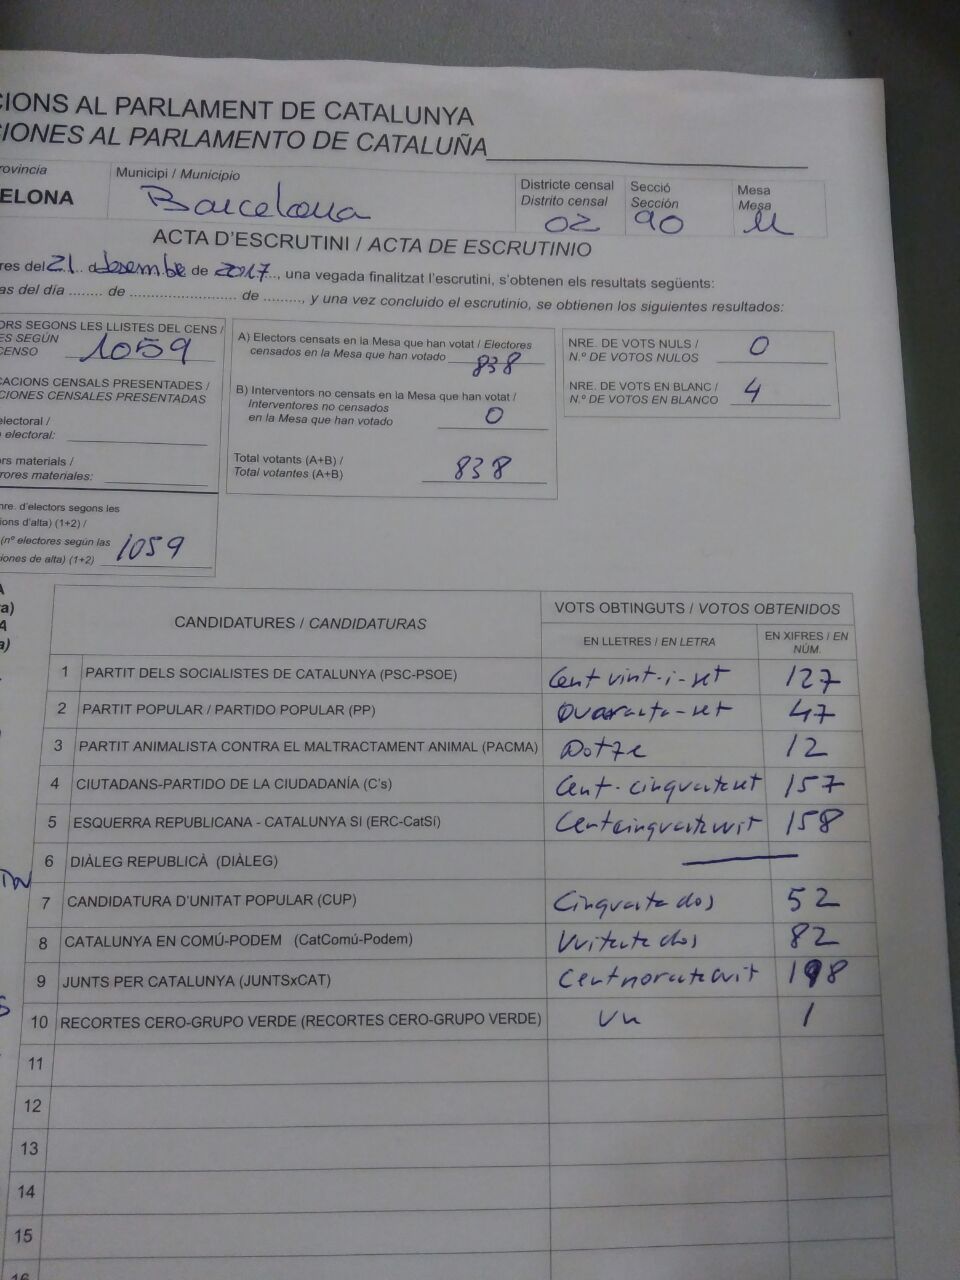 CIONS AL PARLAMENT DE CATALUNYA
CIONES AL PARLAMENTO DE CATALUÑA
rovincia
ELONA
Municipi / Municipio
Barcelona
Districte censal
Distrito censal
02
Secció
Sección
90
Mesa
Mesa
U
ACTA D'ESCRUTINI / ACTA DE ESCRUTINIO
res del 21 desembre de 2017, una vegada finalitzat l'escrutini, s'obtenen els resultats següents:
as del día ........ de .......................... de ........., y una vez concluido el escrutinio, se obtienen los siguientes resultados:
ORS SEGONS LES LLISTES DEL CENS /
ES SEGÚN
CENSO 1059
CACIONS CENSALS PRESENTADES /
CIONES CENSALES PRESENTADAS
electoral /
o electoral:
ors materials /
rrores materiales:
nre. d'electors segons les
ions d'alta) (1+2) /
(nº electores según las
iones de alta) (1+2) 1059
A) Electors censats en la Mesa que han votat / Electores
censados en la Mesa que han votado 838
B) Interventors no censats en la Mesa que han votat /
Interventores no censados
en la Mesa que han votado 0
Total votants (A+B) /
Total votantes (A+B) 838
NRE. DE VOTS NULS /
N.º DE VOTOS NULOS 0
NRE. DE VOTS EN BLANC /
N.º DE VOTOS EN BLANCO 4
A
ra)
A
a)
CANDIDATURES / CANDIDATURAS
VOTS OBTINGUTS / VOTOS OBTENIDOS
EN LLETRES / EN LETRA
EN XIFRES / EN
NÚM.
1 PARTIT DELS SOCIALISTES DE CATALUNYA (PSC-PSOE) Cent vint-i-set 127
2 PARTIT POPULAR / PARTIDO POPULAR (PP) Quaranta-set 47
3 PARTIT ANIMALISTA CONTRA EL MALTRACTAMENT ANIMAL (PACMA) Dotze 12
4 CIUTADANS-PARTIDO DE LA CIUDADANÍA (C's) Cent-cinquantaset 157
5 ESQUERRA REPUBLICANA - CATALUNYA SI (ERC-CatSí) Centcinquantavuit 158
6 DIÀLEG REPUBLICÀ (DIÀLEG)
7 CANDIDATURA D'UNITAT POPULAR (CUP) Cinquanta dos 52
8 CATALUNYA EN COMÚ-PODEM (CatComú-Podem) Vuitanta dos 82
9 JUNTS PER CATALUNYA (JUNTSxCAT) Centnorantavuit 198
10 RECORTES CERO-GRUPO VERDE (RECORTES CERO-GRUPO VERDE) Un 1
11
12
13
14
15
16